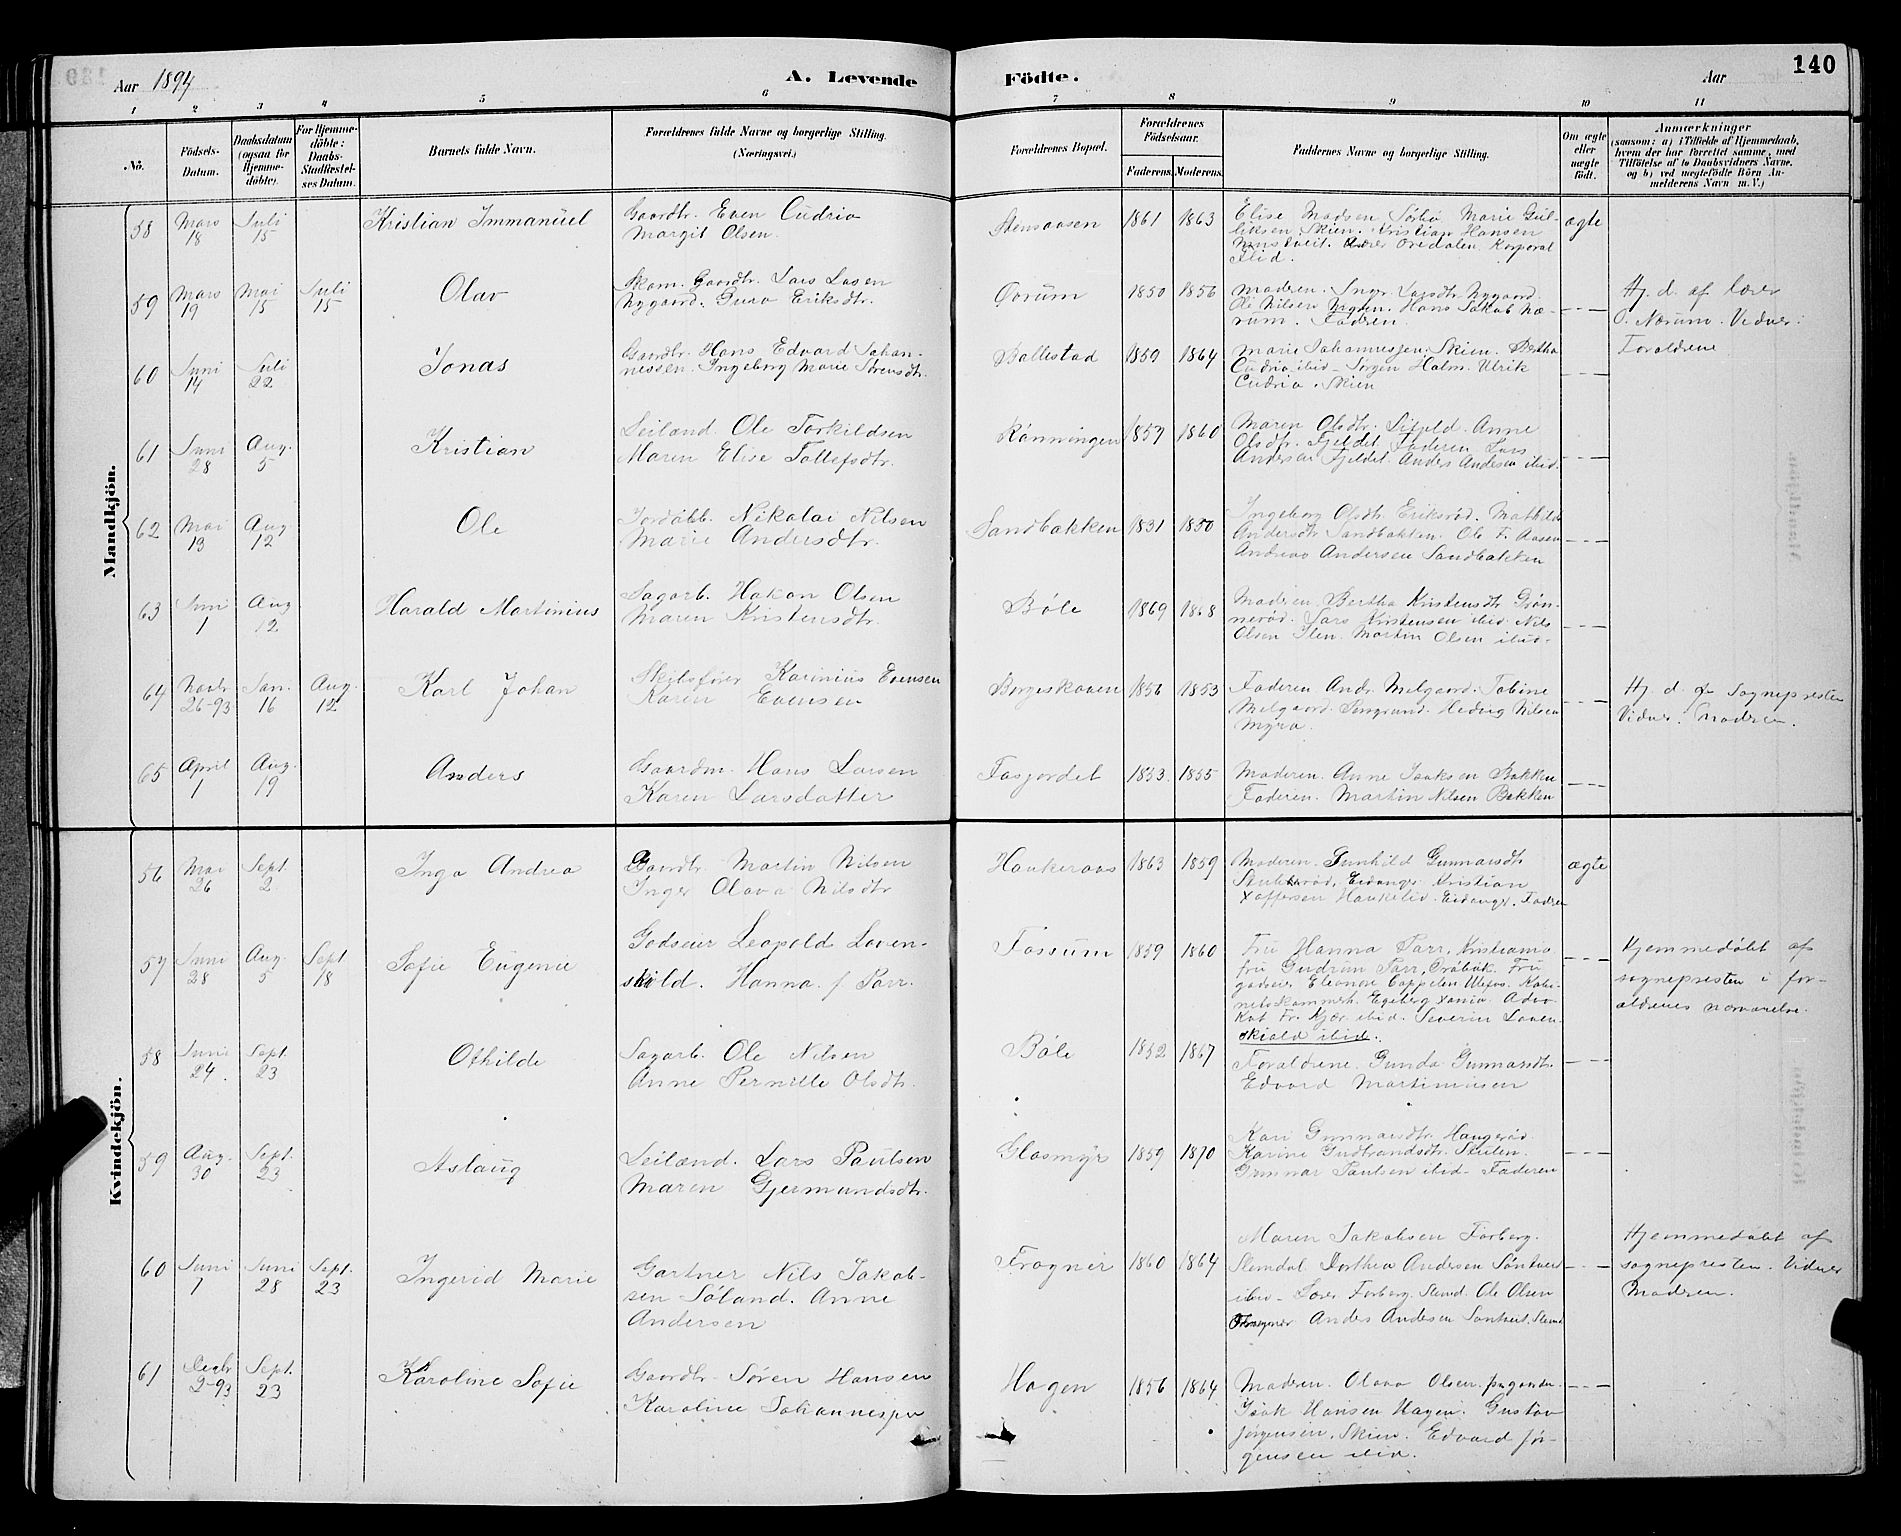 Aar 1894
A. Levende
Födte.
Aar
140
1 2 3 4 5 6 7 8 9 10 11
No.
Födsels-
Datum.
Daabsdatum
(ogsaa for
Hjemme-
döbte).
For Hjemme-
döbte:
Daabs-
Stadfæstel-
ses Datum.
Barnets fulde Navn.
Forældrenes fulde Navne og borgerlige Stilling.
(Næringsvei.)
Forældrenes Bopæl.
Forældrenes
Födselsaar.
Faderens. Moderens.
Faddernes Navne og borgerlige Stilling.
Om ægte
eller
uægte
født.
Anmærkninger
(saasom: a) i Tilfælde af Hjemmedaab,
hvem der har forrettet samme, med
Tilföielse af to Daabsvidners Navne,
og b) ved uægtefödte Börn An-
melderens Navn m. V.)
Mandkjön.
58 Mars 18 Juli 15 Kristian Immanuel
Gaardbr. Even Cudrio
Margit Olsen.
Stensaasen 1861 1863
Elise Madsen Sørbø Marie Gul-
liksen Skien. Kristian Hansen
Oredalen Korporal
Ibid.
ægte
59 Mars 19 Mai 15 Juli 15 Olav
Skom. Gaardbr. Lars Larsen
Nygaard. Guro Eriksdtr.
Ørum 1850 1856
Moderen. Inger Larsdtr. Nygaard.
Ole Nilsen Hans Jakob Næ-
rum. Fadren.
Hj. d. af lærer
O. Nærum. Vidner:
Forældrene
60 Juni 14 Juli 22 Jonas
Gaardbr. Hans Edvard Johan-
nessen. Ingeborg Marie Sørensdtr.
Ballestad 1859 1864
Marie Johannesen. Skien. Bertha
Cudrio ibid. Jørgen Holm. Ulrik
Cudrio. Skien
61 Juni 28 Aug. 5 Kristian
Leilænd. Ole Torkildsen
Maren Elise Tollefsdtr.
Rønningen 1857 1860
Maren Olsdtr. Anne
Olsdtr. Fjeldet Faderen Lars
Andersen Fjeldet. Anders Andersen ibid.
62 Mai 13 Aug. 12 Ole
Jordarb. Nikolai Nilsen
Marie Andersdtr.
Sandbakken 1831 1850
Ingeborg Olsdtr. Eriksrød. Mathilde
Andersdtr Sandbakken. Ole F. Aasen
Andreas Andersen Sandbakken
63 Juni 1 Aug 12 Harald Martinius
Sagarb. Hakon Olsen
Maren Kristensdtr.
Bøle 1869 1868
Moderen. Bertha Kristensdtr Grøn-
nerød. Lars Kristensen ibid. Nils
Olsen Martin Olsen ibid.
64 Novbr. 26-93 Jan. 16 Aug. 12 Karl Johan
Skibsfører Karinius Evensen
Karen Evensen
Borgeskoven 1856 1853
Faderen Andr. Melgaard. Tobine
Melgaard. Hedvig Nilsen
Myra.
Hj. d. af Sognepresten
Vidner. Modren.
65 April 1 Aug. 19 Anders
Gaardm. Hans Larsen
Karen Larsdatter
Fosjordet 1853. 1855
Moderen. Anne Isaksen Bakken
Faderen. Martin Nilsen Bakken
Kvindekjön.
56 Mai 26 Sept 2 Inga Andrea
Gaardbr Martin Nilsen
Inger Olava Nilsdtr
Haukeraas 1863 1859
Moderen. Gunhild Gunnarsdtr
Eidanger Kristian
Xoffersen Haukelid. Eidanger. Fadren
ægte
57 Juni 28 Aug. 5 Sept 18 Sofie Eugenie
Godseier Leopold Løven-
skiold. Hanna f. Parr.
Fossum 1859 1860
Fru Hanna Parr, Kristiania
fru Gudrun Parr, Drøbak. Fru
godseier Eleonore Cappelen Ulefos. Kabi-
netskammerh. Egeberg Xania. Advo-
kat Fr. Kjær ibid. Severin Løven-
skiold ibid.
Hjemmedøbt af
sognepresten i for-
ældrenes nærværelse.
58 Juni 24. Sept. 23 Othilde
Sagarb. Ole Nilsen
Anne Pernille Olsdtr.
Bøle 1852 1867
Forældrene. Gunda Gunnarsdtr.
Edvard Martiniusen
59 Aug. 30 Sept. 23 Aslaug
Leilænd. Lars Paulsen
Maren Gjermundsdtr.
Glasmyr 1859 1870
Kari Gunnarsdtr. Haugerød.
Karine Gudbrandsdtr. Stulen.
Gunnar Paulsen ibid. Faderen
60 Juni 1 Juni 28 Sept. 23 Ingerid Marie
Gartner Nils Jakob-
sen Søland. Anne
Andersen
Frogner 1860 1864
Maren Jakobsen Forberg.
Slemdal Dorthea Andersen Sóntveit
ibid. Lærer Forberg. Slemd. Ole Olsen
Frogner Anders Andersen Sóntveit. Slemd
Hjemmedøbt af
sognepresten. Vidner
Modren.
61 Decbr. 2-93 Sept. 23 Karoline Sofie
Gaardbr. Søren Hansen
Karoline Johannesen
Hagen 1856 1864
Moderen. Olava Olsen.
Isak Hansen Hagen. Gustav
Jørgensen. Skien. Edvard Jør-
gensen ibid.